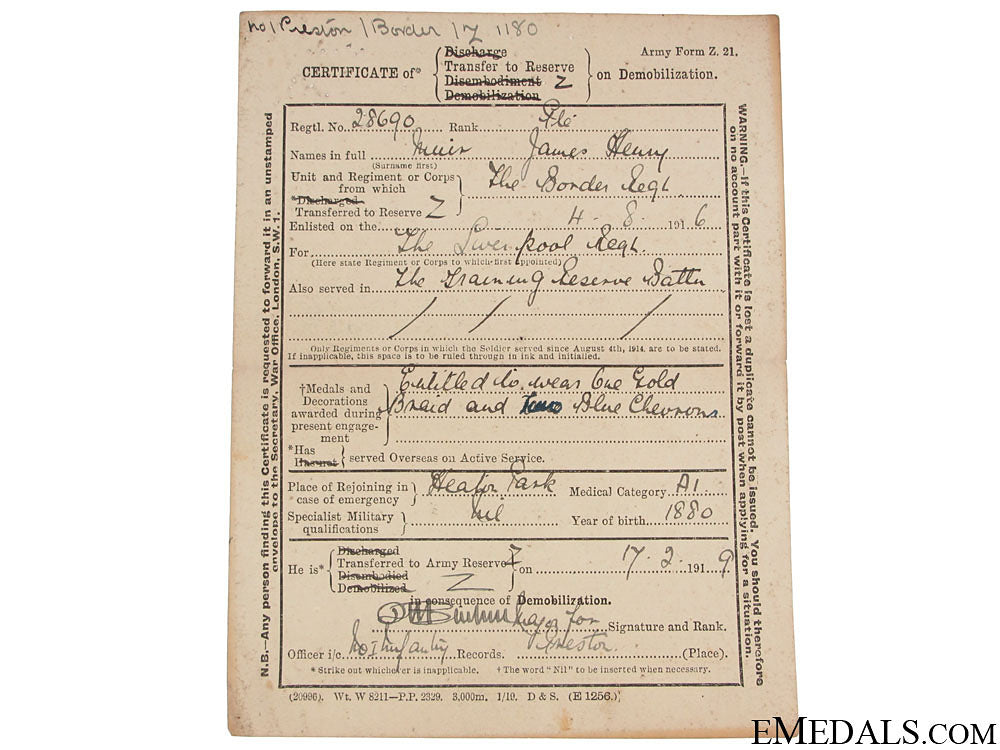 No 1 Preston / Border / Z 1180
Army Form Z. 21.
CERTIFICATE of* { Discharge
Transfer to Reserve Z
Disembodiment
Demobilization } on Demobilization.
Regtl. No. 28690 Rank Pte
Names in full Muir James Henry
(Surname first)
Unit and Regiment or Corps from which } The Border Regt
*Discharged
Transferred to Reserve Z
Enlisted on the 4 . 8 . 1916
For The Liverpool Regt.
(Here state Regiment or Corps to which first appointed)
Also served in The Training Reserve Battn
Only Regiments or Corps in which the Soldier served since August 4th, 1914, are to be stated.
If inapplicable, this space is to be ruled through in ink and initialled.
†Medals and Decorations awarded during present engage-ment } Entitled to wear One Gold
Braid and two Blue Chevrons
*Has
Has not } served Overseas on Active Service.
Place of Rejoining in case of emergency } Heaton Park Medical Category A1
Specialist Military qualifications } nil Year of birth 1880
He is* { Discharged
Transferred to Army Reserve Z
Disembodied Z
Demobilized } on 17 . 2 . 1919
in consequence of Demobilization.
Major for Signature and Rank.
Officer i/c No 1 Infantry Records. Preston (Place).
* Strike out whichever is inapplicable. † The word "Nil" to be inserted when necessary.
(20996). Wt. W 8211—P.P. 2329. 3,000m. 1/19. D & S. (E 1256.)
N.B.—Any person finding this Certificate is requested to forward it in an unstamped
envelope to the Secretary, War Office, London, S.W. 1.
WARNING.—If this Certificate is lost a duplicate cannot be issued. You should therefore
on no account part with it or forward it by post when applying for a situation.
EMEDALS.COM